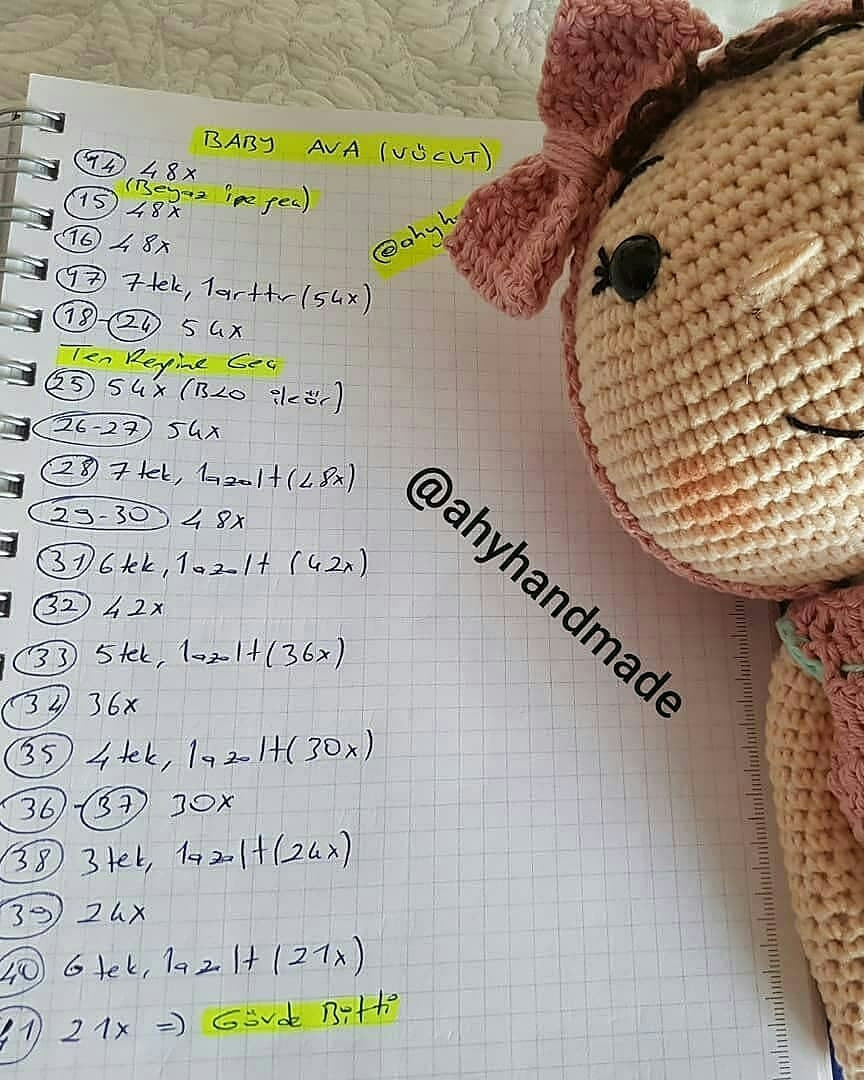 BABY AVA (VÜCUT)
14 48x
(Beyaz ipe geç)
15 48x
@ahyh
16 48x
17 7tek, 1arttır (54x)
18-24 54x
Ten Rengine Geç
25 54x (BLO ile ör)
26-27 54x
28 7tek, 1azalt (48x)
29-30 48x
31 6tek, 1azalt (42x)
32 42x
33 5tek, 1azalt (36x)
34 36x
35 4tek, 1azalt (30x)
36-37 30x
38 3tek, 1azalt (24x)
39 24x
40 6tek, 1azalt (21x)
41 21x => Gövde Bitti
@ahyhandmade